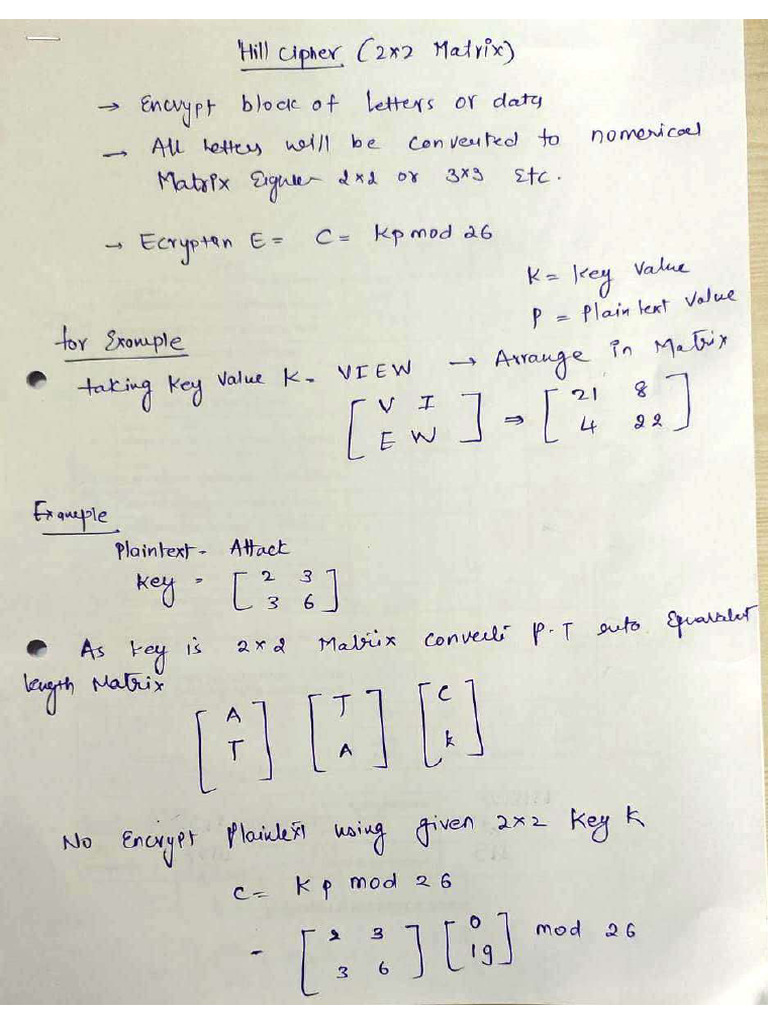 Hill Cipher (2×2 Matrix)
→ Encrypt block of letters or data
→ All letters will be converted to nomerical
Matrix Eigher 2×2 or 3×3 Etc.
→ Ecryptan E = C = Kp mod 26
K = Key Value
P = Plain text value
for Example
taking Key Value K = VIEW → Arrange in Matrix
[V I E W] ⇒ [21 8 4 22]
Example
Plaintext - Attack
Key = [2 3 3 6]
As key is 2×2 Matrix convert P.T into Equivalent
length Matrix
[A T] [T A] [C K]
No Encrypt Plaintext using given 2×2 Key K
C = K P mod 26
= [2 3 3 6] [0 19] mod 26